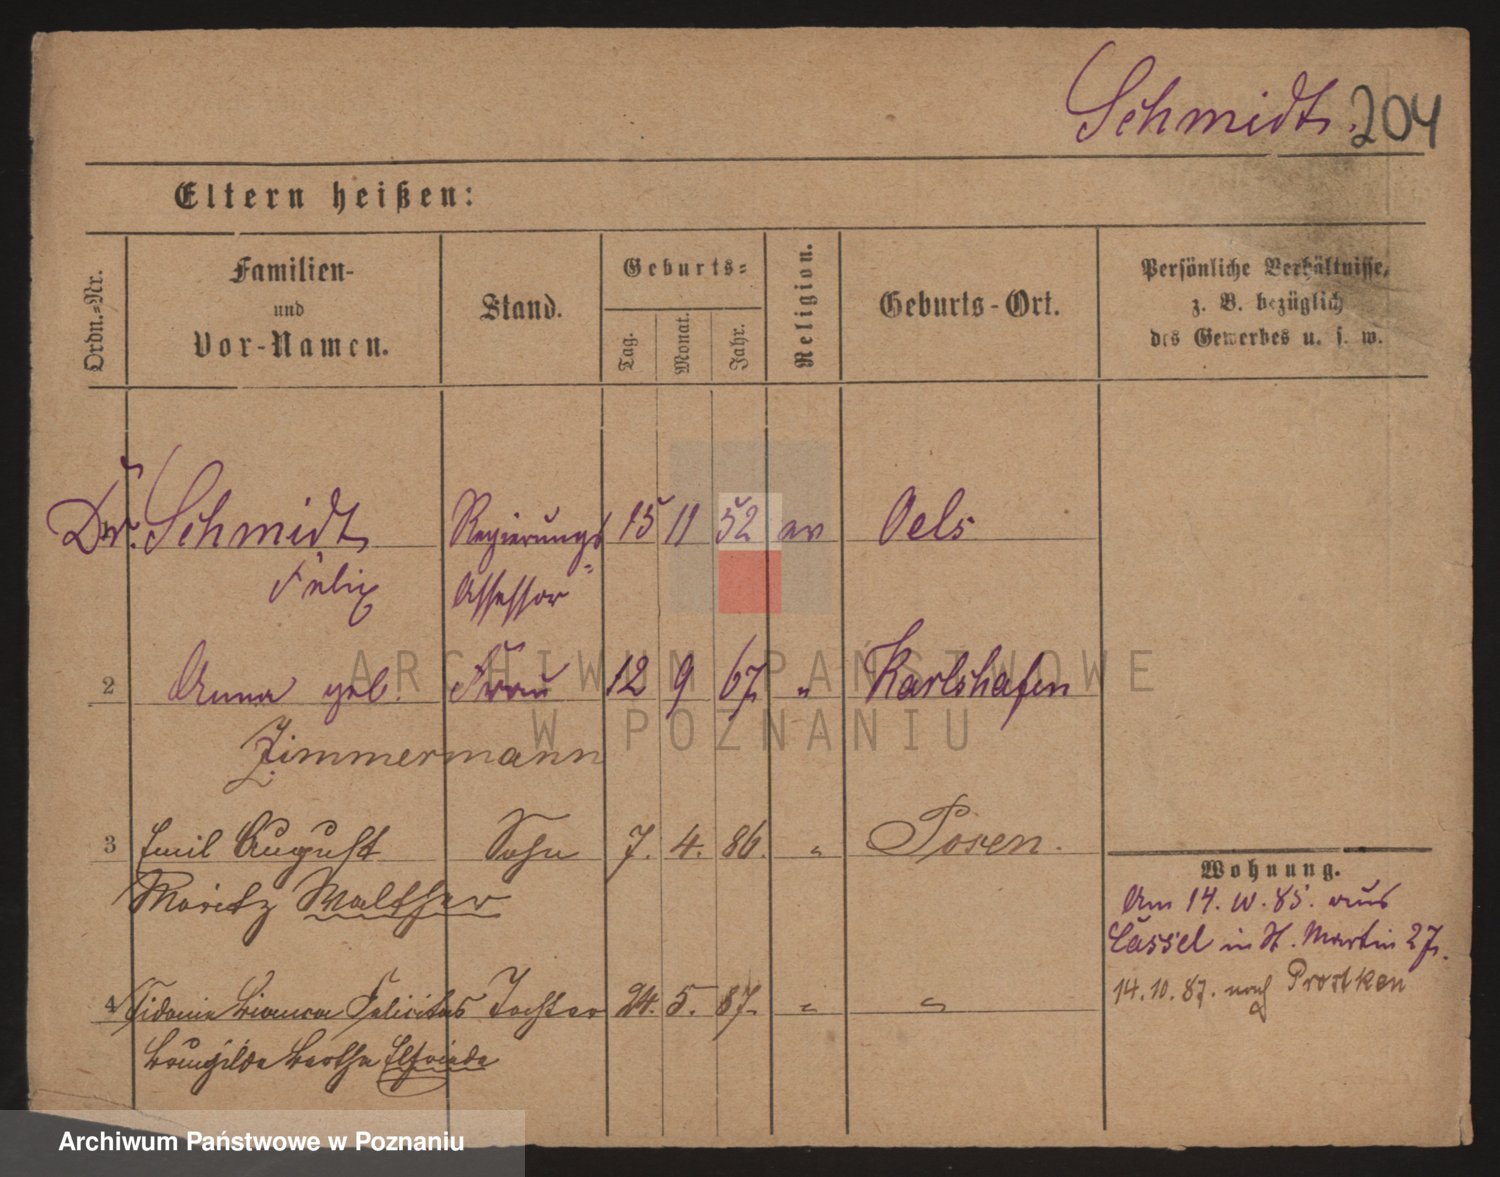 Schmidt. 204
Eltern heißen:
Ordn.-Nr.
Familien-
und
Vor-Namen.
Stand.
Geburts-
Tag.
Monat.
Jahr.
Religion.
Geburts-Ort.
Persönliche Verhältnisse,
z. B. bezüglich
des Gewerbes u. s. w.
Dr. Schmidt Regierungs 15 11 52 ev Oels
Felix Assessor
2 Anna geb. Frau 12 9 67 " Karlshafen
Zimmermann
3 Emil August Sohn 7. 4. 86. " Posen.
Moritz Walther
4 Sidonie Bianca Felicitas Tochter 24. 5. 87. " "
Brunhilde Bertha Elfriede
Wohnung.
Am 14. 85. aus
Cassel in St. Martin 27.
14.10.87. nach Prostken
ARCHIWUM PAŃSTWOWE
W POZNANIU
Archiwum Państwowe w Poznaniu